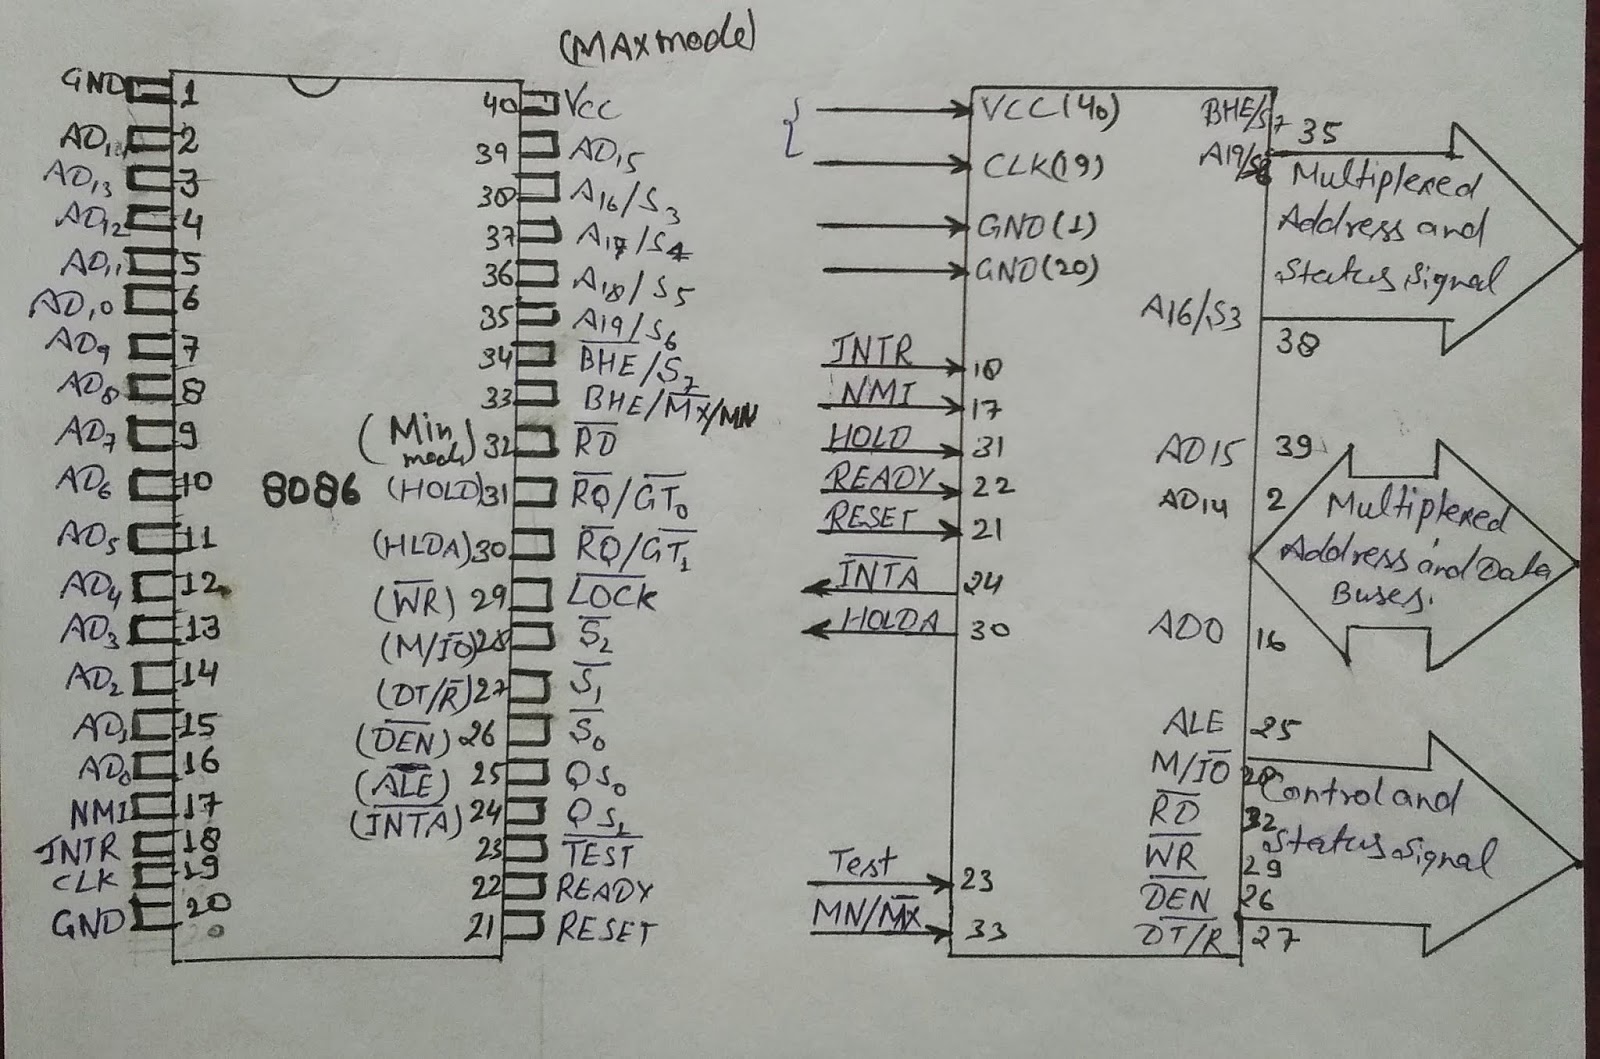 (MAX mode)
GND 1
AD1 2
AD13 3
AD12 4
AD11 5
AD10 6
AD9 7
AD8 8
AD7 9
AD6 10
AD5 11
AD4 12
AD3 13
AD2 14
AD1 15
AD0 16
NMI 17
INTR 18
CLK 19
GND 20
8086
40 VCC
39 AD15
38 A16/S3
37 A17/S4
36 A18/S5
35 A19/S6
34 B̅H̅E̅/S7
33 BHE/M̅X̅/MN
(Min mode) 32 R̅D̅
(HOLD) 31 R̅Q̅/G̅T̅0
(HLDA) 30 R̅Q̅/G̅T̅1
(W̅R̅) 29 L̅O̅C̅K̅
(M/I̅O̅) 28 S̅2
(DT/R̅) 27 S̅1
(D̅E̅N̅) 26 S̅0
(A̅L̅E̅) 25 QS0
(I̅N̅T̅A̅) 24 QS1
23 T̅E̅S̅T̅
22 READY
21 RESET
VCC(40)
CLK(19)
GND(1)
GND(20)
INTR 18
NMI 17
HOLD 31
READY 22
RESET 21
I̅N̅T̅A̅ 24
HOLDA 30
Test 23
MN/M̅X̅ 33
BHE/S7
A19/S6 35
Multiplexed
Address and
Status Signal
A16/S3 38
AD15 39
AD14 2
Multiplexed
Address and Data
Buses.
AD0 16
ALE 25
M/I̅O̅ 28
R̅D̅ 32
W̅R̅ 29
D̅E̅N̅ 26
D̅T̅/R̅ 27
Control and
Status Signal